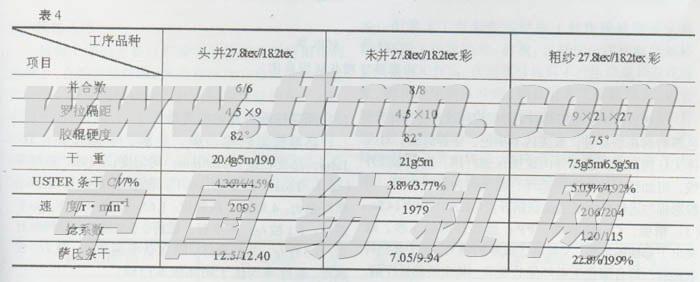 表4
工序品种 项目 头并27.8tex/18.2tex 未并27.8tex/18.2tex彩 粗纱27.8tex/18.2tex彩
并合数 6/6 8/8
罗拉隔距 4.5×9 4.5×10 9×21×27
胶辊硬度 82° 82° 75°
干 重 20.4g/5m/19.0 21g/5m 7.5g/5m/6.5g/5m
USTER条干CV/% 4.36%/4.5% 3.8%/3.77% 5.03%/4.92%
速 度/r·min⁻¹ 2095 1979 206/204
捻系数 120/115
萨氏条干 12.5/12.40 7.05/9.94 22.8%/19.9%
www.ttmn.com
中国纺机网